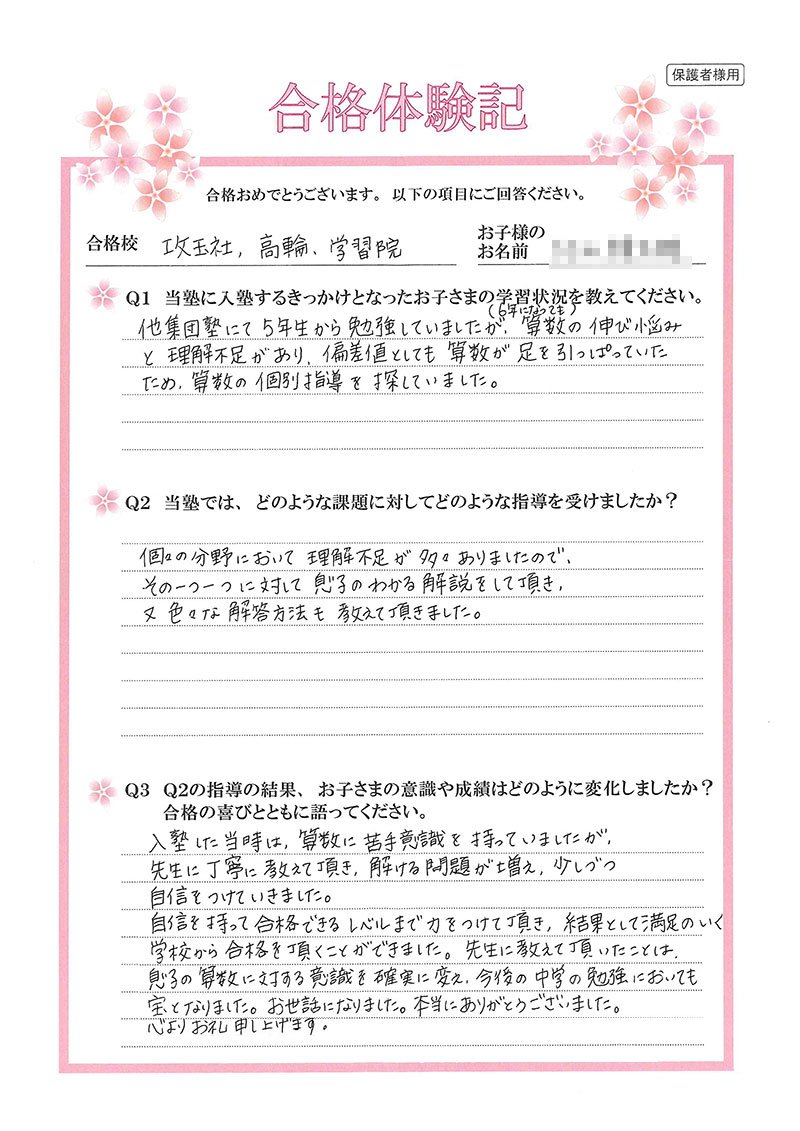 保護者様用
合格体験記
合格おめでとうございます。以下の項目にご回答ください。
合格校 攻玉社, 高輪、学習院
お子様の
お名前
Q1 当塾に入塾するきっかけとなったお子さまの学習状況を教えてください。
(6年になっても)
他集団塾にて5年生から勉強していましたが、算数の伸び悩み
と理解不足があり、偏差値としても算数が足を引っぱっていた
ため、算数の個別指導を探していました。
Q2 当塾では、どのような課題に対してどのような指導を受けましたか?
個々の分野において理解不足が多々ありましたので、
その一つ一つに対して息子のわかる解説をして頂き、
又色々な解答方法も教えて頂きました。
Q3 Q2の指導の結果、お子さまの意識や成績はどのように変化しましたか?
合格の喜びとともに語ってください。
入塾した当時は、算数に苦手意識を持っていましたが、
先生に丁寧に教えて頂き、解ける問題が増え、少しづつ
自信をつけていきました。
自信を持って合格できるレベルまで力をつけて頂き、結果として満足のいく
学校から合格を頂くことができました。先生に教えて頂いたことは、
息子の算数に対する意識を確実に変え、今後の中学の勉強においても
宝となりました。お世話になりました。本当にありがとうございました。
心よりお礼申し上げます。